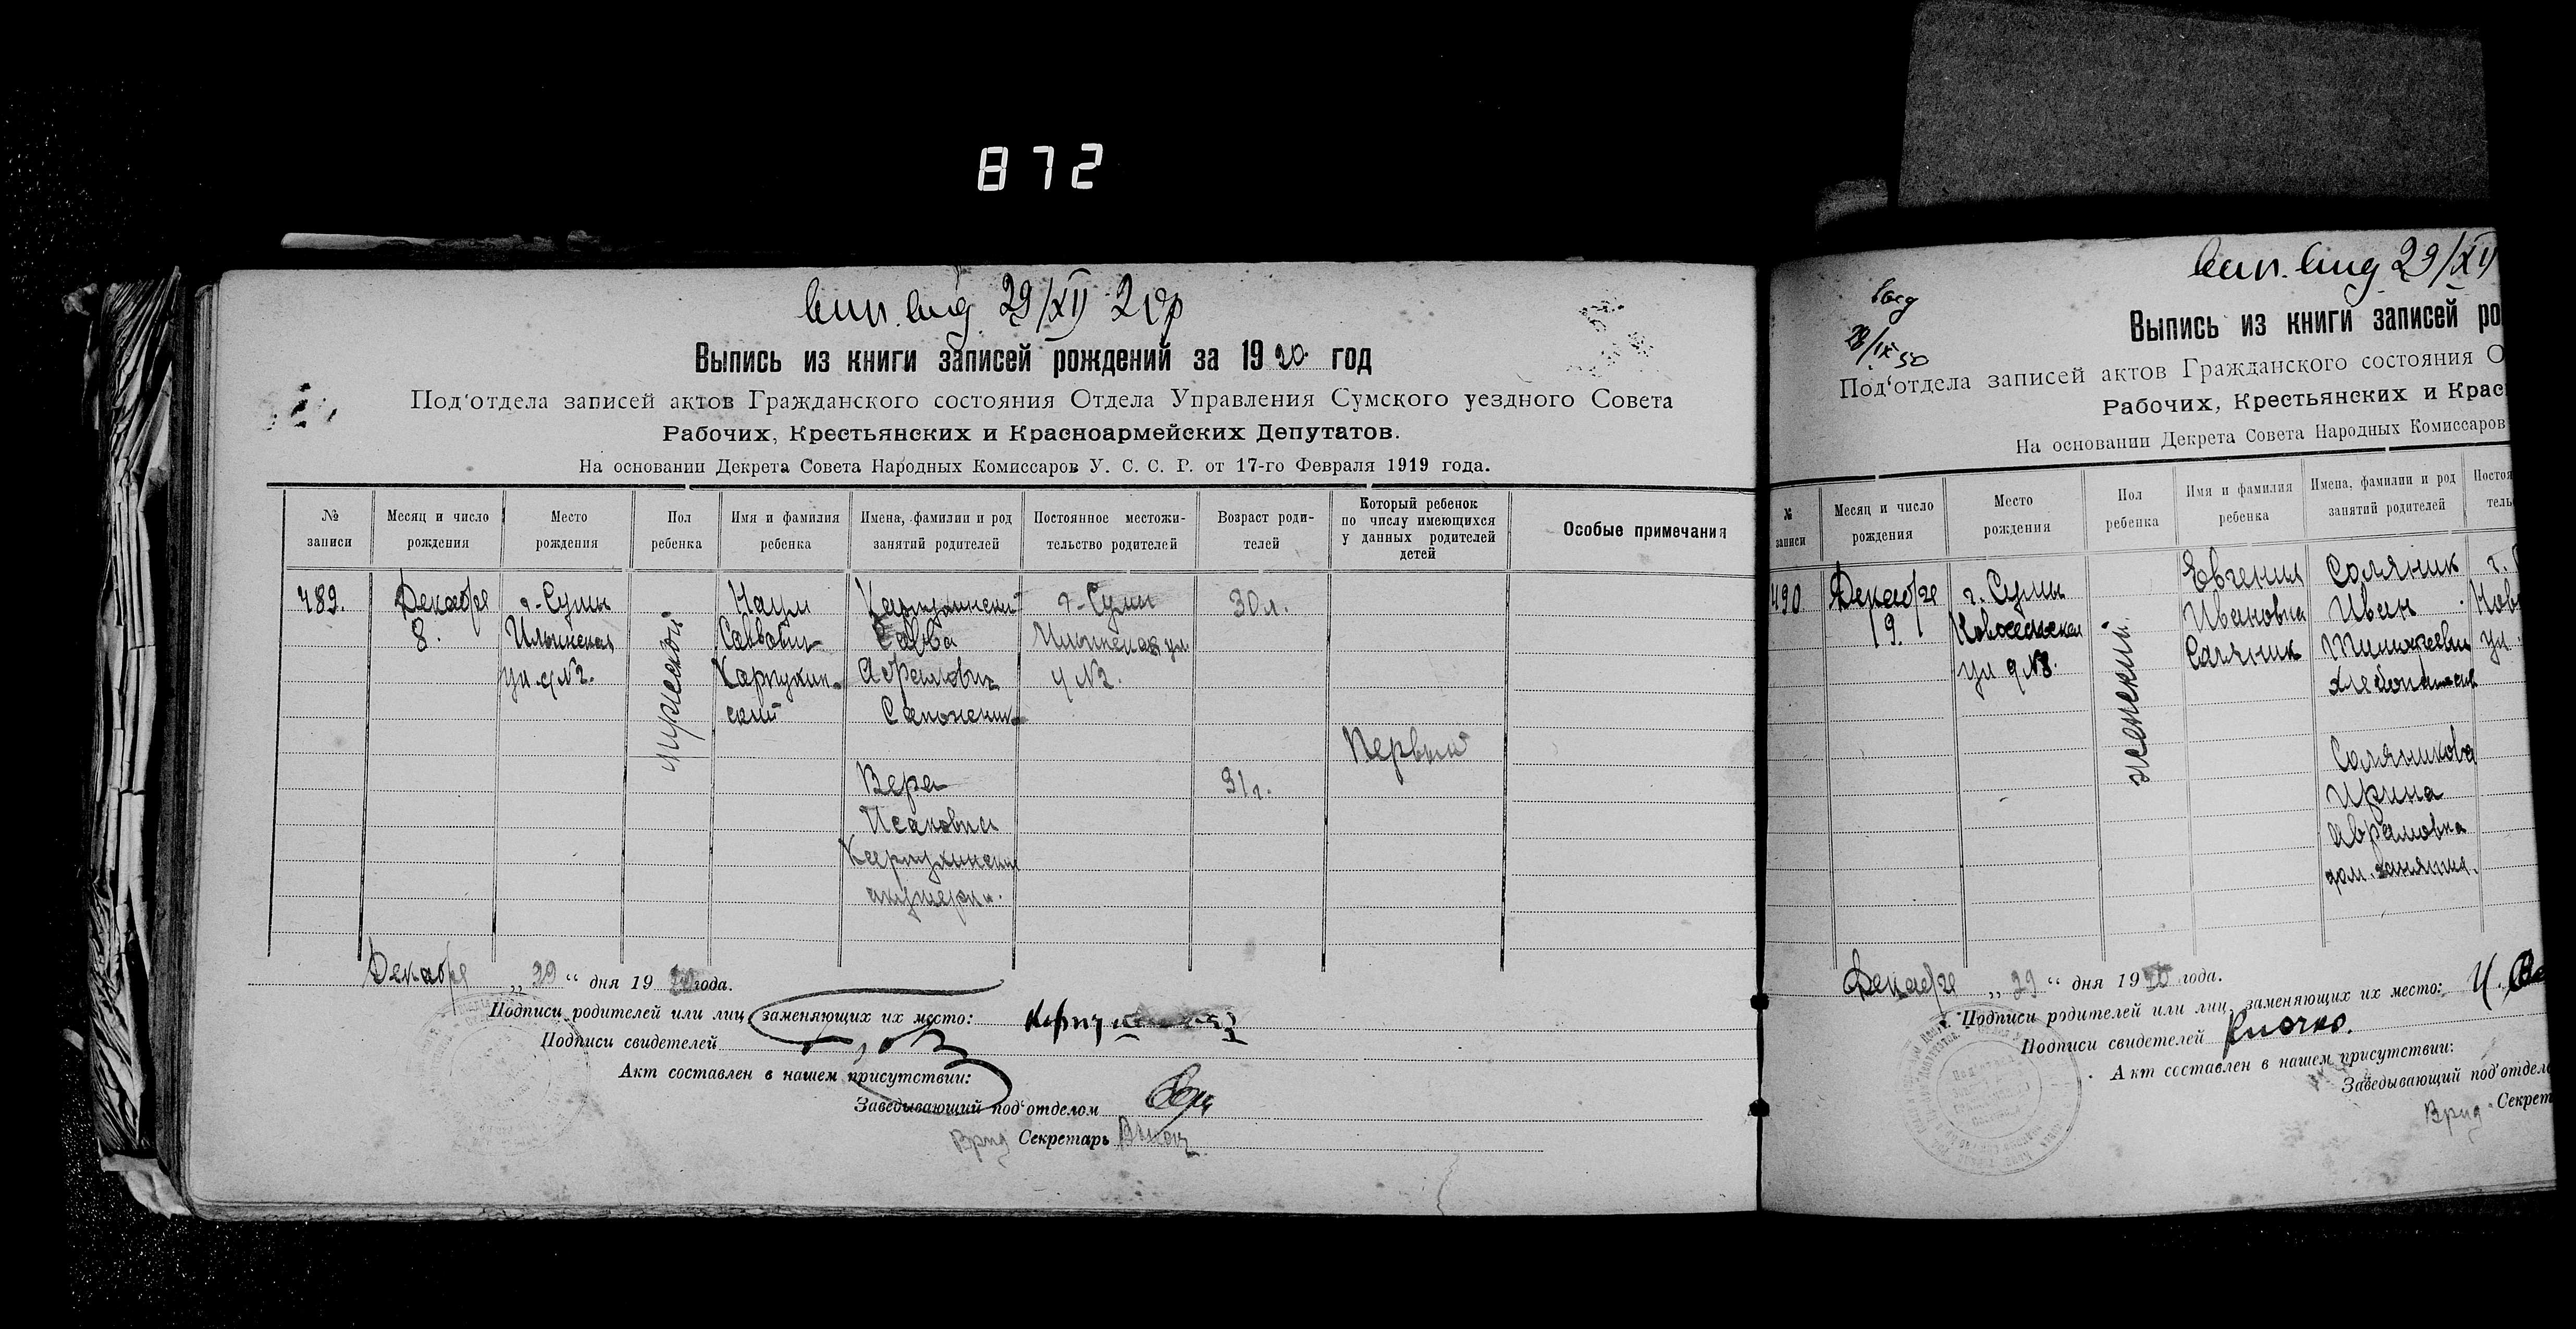 872
29/XII 20 г
Выпись из книги записей рождений за 1920 год
Под'отдела записей актов Гражданского состояния Отдела Управления Сумского уездного Совета
Рабочих, Крестьянских и Красноармейских Депутатов.
На основании Декрета Совета Народных Комиссаров У. С. С. Р. от 17-го Февраля 1919 года.
№ записи
Месяц и число рождения
Место рождения
Пол ребенка
Имя и фамилия ребенка
Имена, фамилии и род занятий родителей
Постоянное местожительство родителей
Возраст родителей
Который ребенок по числу имеющихся у данных родителей детей
Особые примечания
489.
Декабря
8.
г. Сумы
Ильинская
ул. д № 2.
мужеский
Наум
Саввович
Карпухин-
ский
Карпухинский
Савва
Вера
Исаковна
Карпухинская
акушерка.
г. Сумы
Ильинская ул.
д № 2.
30 л.
31 г.
Первый
Декабря „29“ дня 1920 года.
Подписи родителей или лиц, заменяющих их место:
Подписи свидетелей
Акт составлен в нашем присутствии:
Заведывающий под'отделом
Врид Секретарь
29/XII
28/IX 50
Выпись из книги записей ро
Под'отдела записей актов Гражданского состояния О
Рабочих, Крестьянских и Крас
На основании Декрета Совета Народных Комиссаров
№ записи
Месяц и число рождения
Место рождения
Пол ребенка
Имя и фамилия ребенка
Имена, фамилии и род занятий родителей
Постоя
тель
490
Декабря
19
г. Сумы
ул д № 8.
женский
Евгения
Ивановна
Саляник
Саляник
Иван
Саляникова
Ирина
Аврамовна
дом. занятия.
г. С
Ново
ул
Декабря „29“ дня 1920 года.
Подписи родителей или лиц, заменяющих их место:
Подписи свидетелей Клочко.
Акт составлен в нашем присутствии:
Заведывающий под'отдело
Врид Секрет